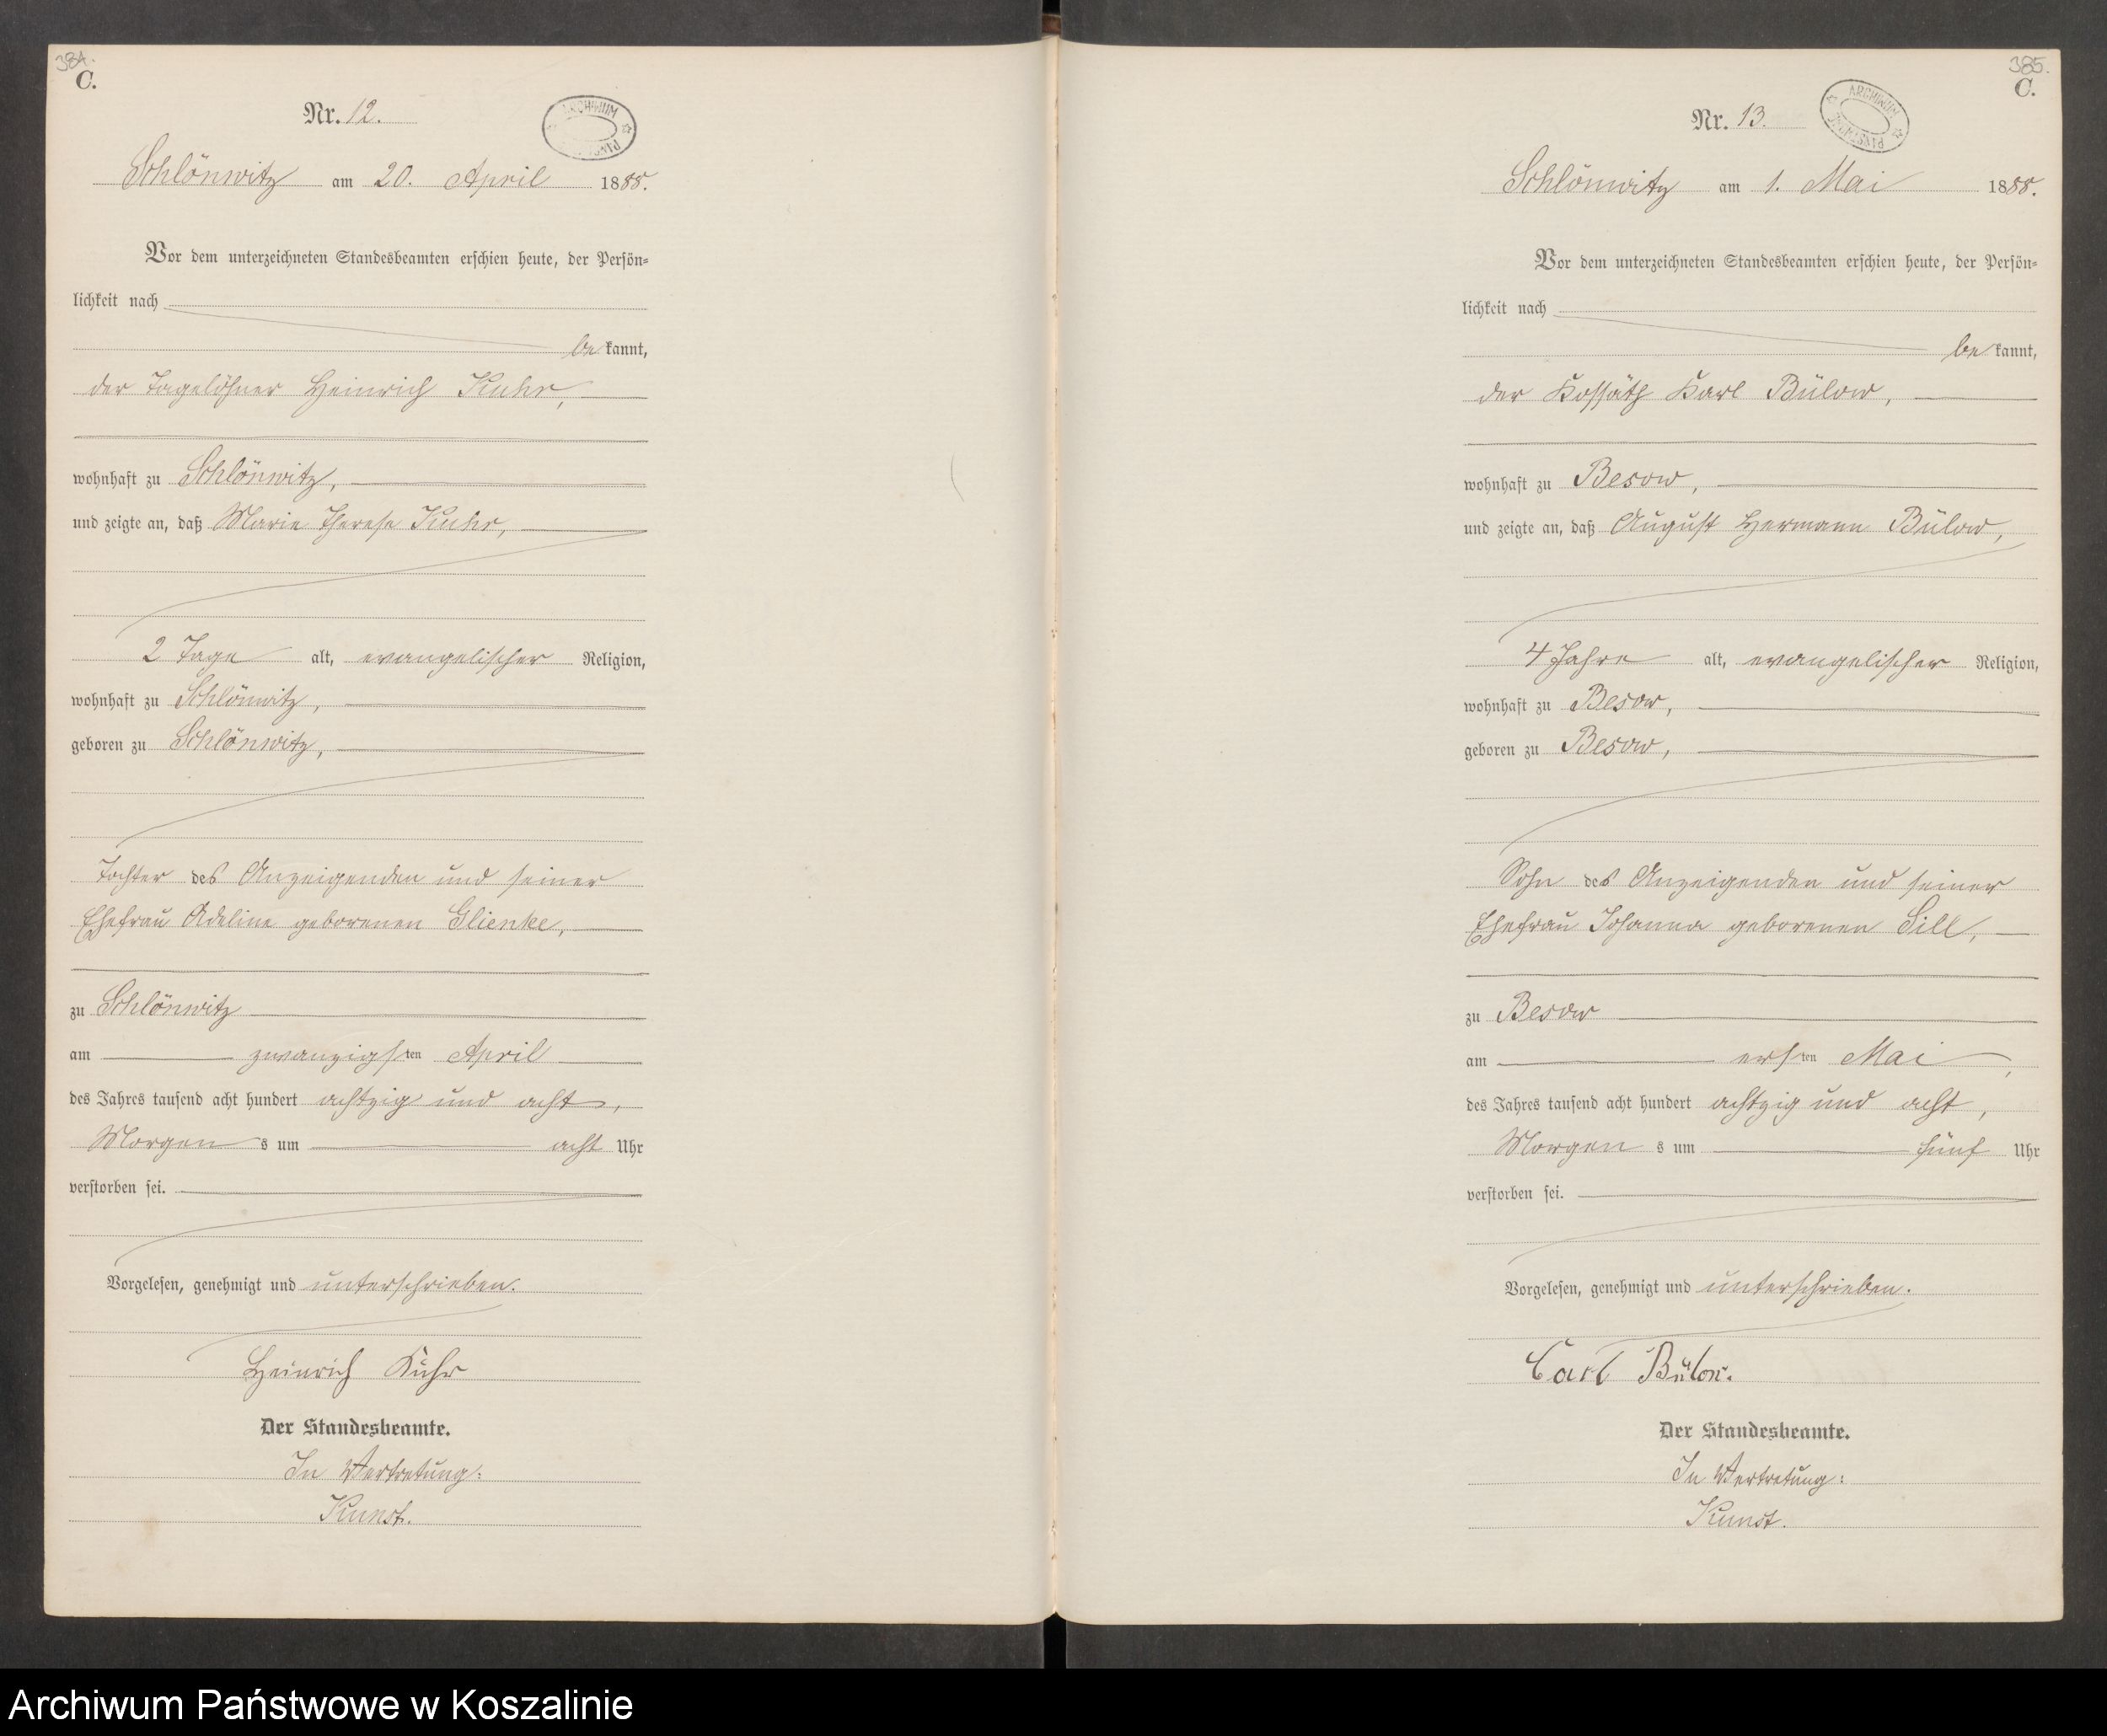 384.
C.
Nr. 12.
ARCHIWUM
Schlönwitz am 20. April 1888.
Vor dem unterzeichneten Standesbeamten erschien heute, der Persön-
lichkeit nach
be kannt,
der Tagelöhner Heinrich Kuhr,
wohnhaft zu Schlönwitz,
und zeigte an, daß Marie Therese Kuhr,
2 Tage alt, evangelischer Religion,
wohnhaft zu Schlönwitz,
geboren zu Schlönwitz,
Tochter des Anzeigenden und seiner
Ehefrau Adeline geborenen Glienke,
zu Schlönwitz
am zwanzigsten April
des Jahres tausend acht hundert achtzig und acht,
Morgens um acht Uhr
verstorben sei.
Vorgelesen, genehmigt und unterschrieben.
Heinrich Kuhr
Der Standesbeamte.
In Vertretung:
Kunst.
385.
C.
Nr. 13.
ARCHIWUM
Schlönwitz am 1. Mai 1888.
Vor dem unterzeichneten Standesbeamten erschien heute, der Persön-
lichkeit nach
be kannt,
der Kossäth Karl Bülow,
wohnhaft zu Besow,
und zeigte an, daß August Hermann Bülow,
4 Jahre alt, evangelischer Religion,
wohnhaft zu Besow,
geboren zu Besow,
Sohn des Anzeigenden und seiner
Ehefrau Johanna geborenen Sill,
zu Besow
am ersten Mai,
des Jahres tausend acht hundert achtzig und acht,
Morgens um fünf Uhr
verstorben sei.
Vorgelesen, genehmigt und unterschrieben.
Carl Bülow.
Der Standesbeamte.
In Vertretung:
Kunst.
Archiwum Państwowe w Koszalinie